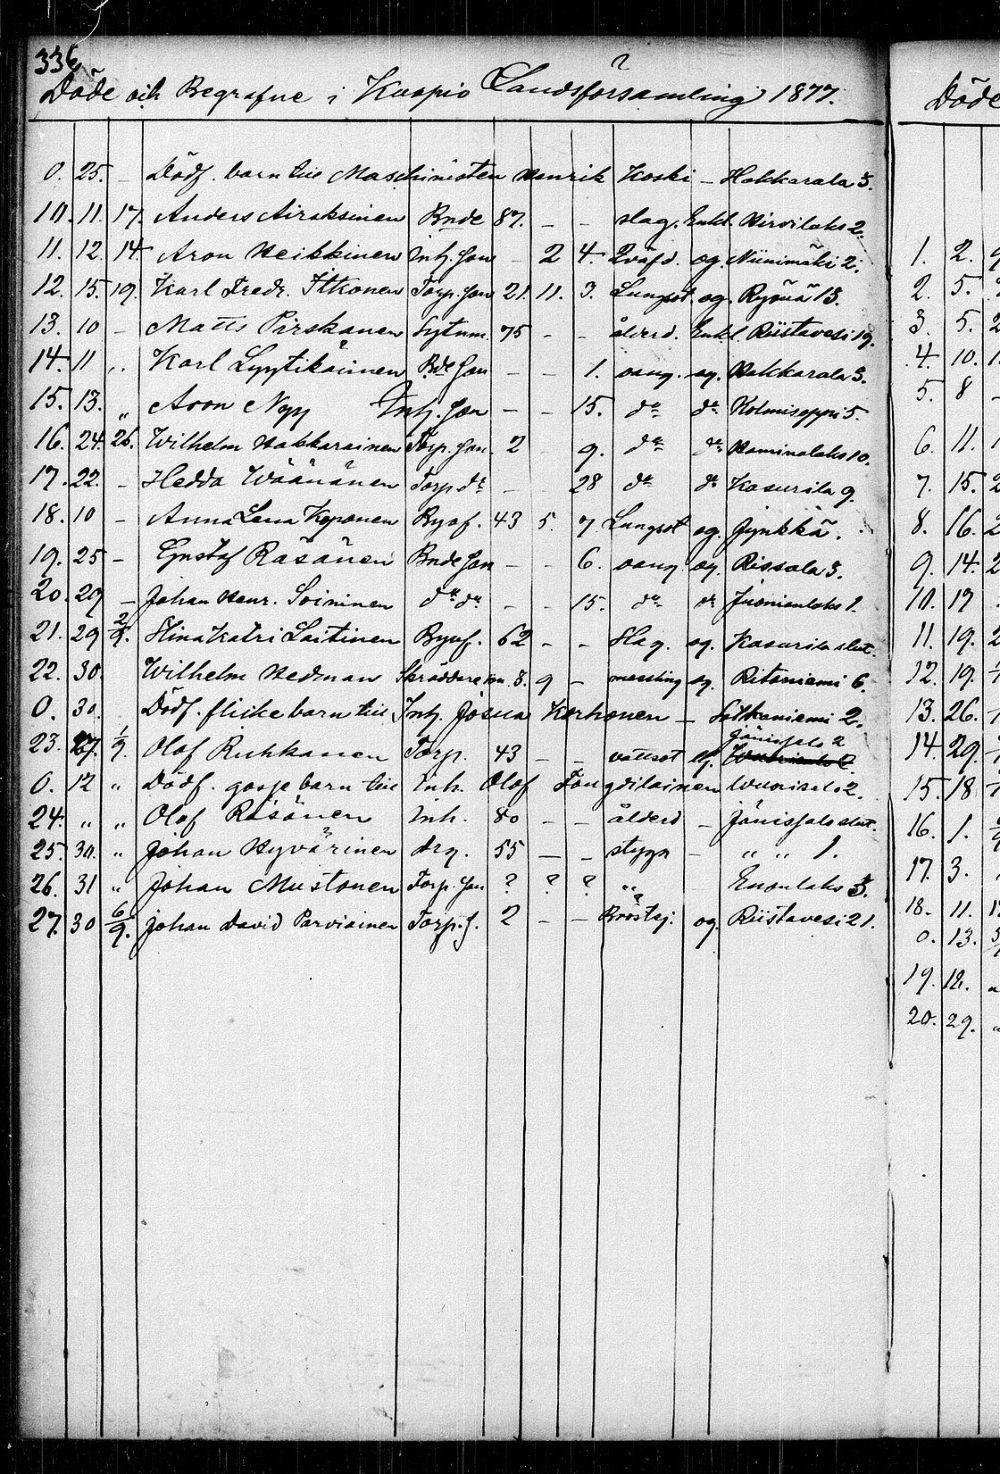 336
Döde och Begrafne i Kuopio Landsförsamling 1877.
0. 25. – Dödf. barn till Maschinisten Henrik Koski – Hakkarala 5.
10. 11. 17. Anders Airaksinen Bnde 87. – – slag. Enkl. Hirvilaks 2.
11. 12. 14 Aron Heikkinen Inh. Son – 2 4. Qväfd. og. Niinimäki 2.
12. 15. 19. Karl Fredr. Itkonen Torp. Son 21. 11. 3. Lungsot og. Ryönä 13.
13. 10 – Matts Pirskanen Sytnm. 75 – – ålderd. Enkl. Riistavesi 19.
14. 11 „ Karl Lyytikäinen Bde Son – – 1. oang. og. Hakkarala 5.
15. 13. „ Aron Nyy Inh. Son – – 15. do do Kolmisoppi 5.
16. 24. 26. Wilhelm Hakkarainen Torp. Son. 2 – 9. do do Haminalaks 10.
17. 22. – Hedda Wäänänen Torp dr – – 28 do do Kasurila 9.
18. 10 – Anna Lena Keponen Byqf. 43 5. 7 Lungsot og. Jynkkä.
19. 25 – Gustaf Räsänen Bnde Son – – 6. oang. og. Rissala 3.
20. 29 – Johan Henr. Soininen do do – – 15. do do Juonionlaks 1.
21. 29 2/9. Stina Katri Laitinen Byqf. 62 – – Slag. og. Kasurila slut.
22. 30. Wilhelm Hedman Skräddare son 8. 9 – messling og. Ritoniemi 6.
0. 30. Dödf. flickebarn till Inh. Josua Korhonen – Sotkaniemi 2.
Jänissalo 2
23. 27. 1/9. Olof Ruhkanen Torp. 43 – – vattsot og.
0. 12 „ Dödf. gossebarn till Inh. Olof Wuorisalo 2.
24. „ „ Olof Räsänen Inh. 80 – – ålderd – Jänissalo slut.
25. 30. „ Johan Hyvärinen drg. 55 – – – „ „ 1.
26. 31 „ Johan Mustonen Torp. Son ? ? ? „ Enonlaks 5.
27. 30 6/9. Johan David Parviainen Torp. S. 2 – – Bröstsj. og. Riistavesi 21.
Döde
1. 2.
2. 5.
3. 5. 2
4. 10. 1
5. 8 –
6. 11. 1
7. 15. 2
8. 16. 2
9. 14. 2
10. 17
11. 19. 2
12. 19.
13. 26.
14. 29.
15. 18
16. 1.
17. 3.
18. 11.
0. 13.
19. 12.
20. 29. „